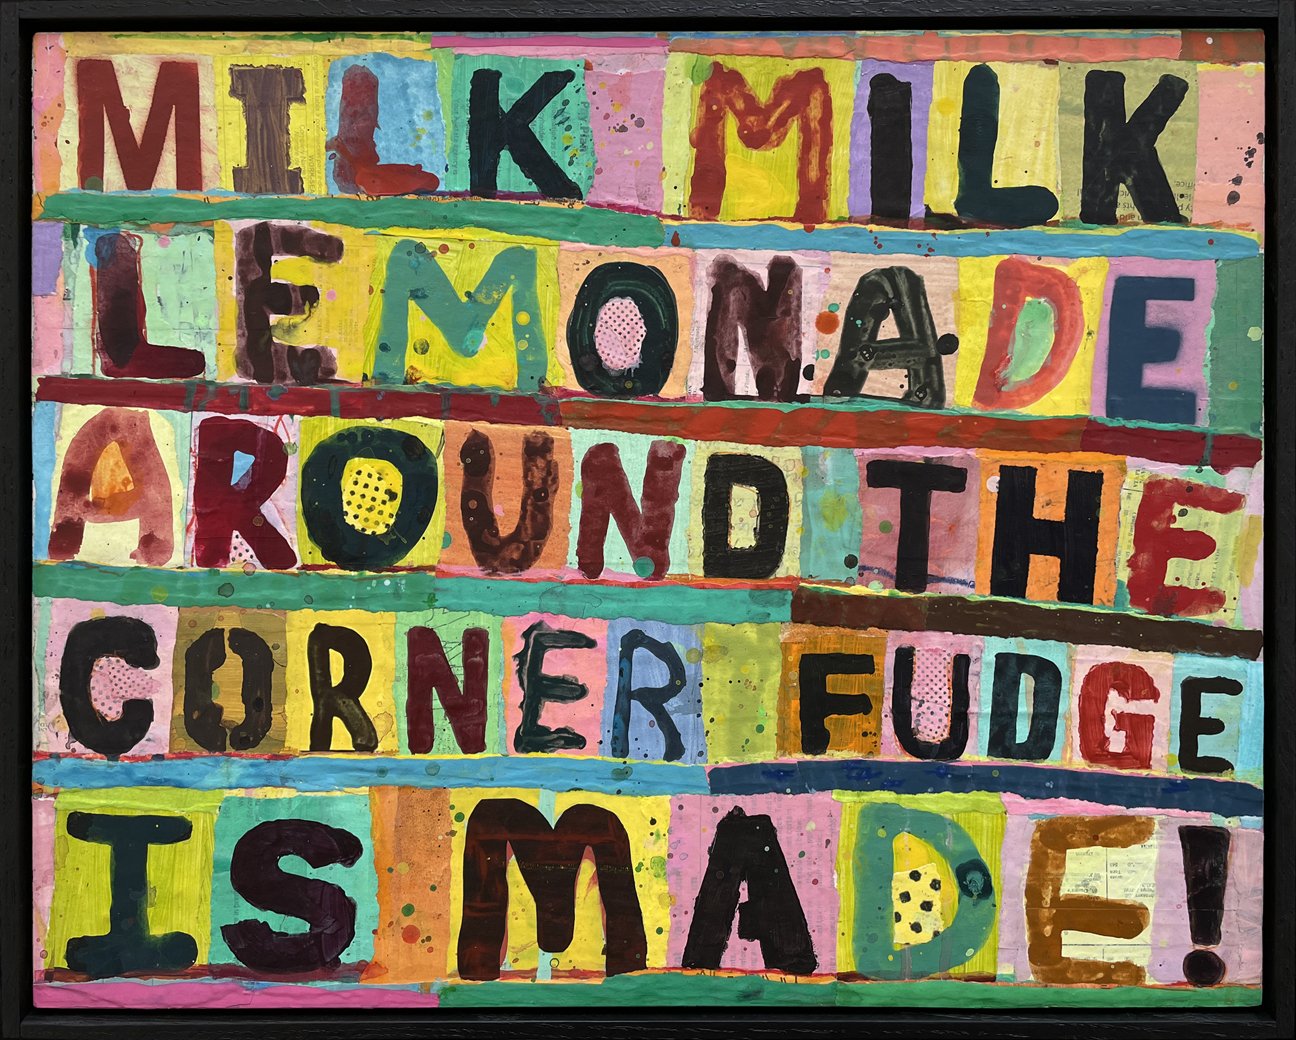 MILK MILK
LEMONADE
AROUND THE
CORNER FUDGE
IS MADE!